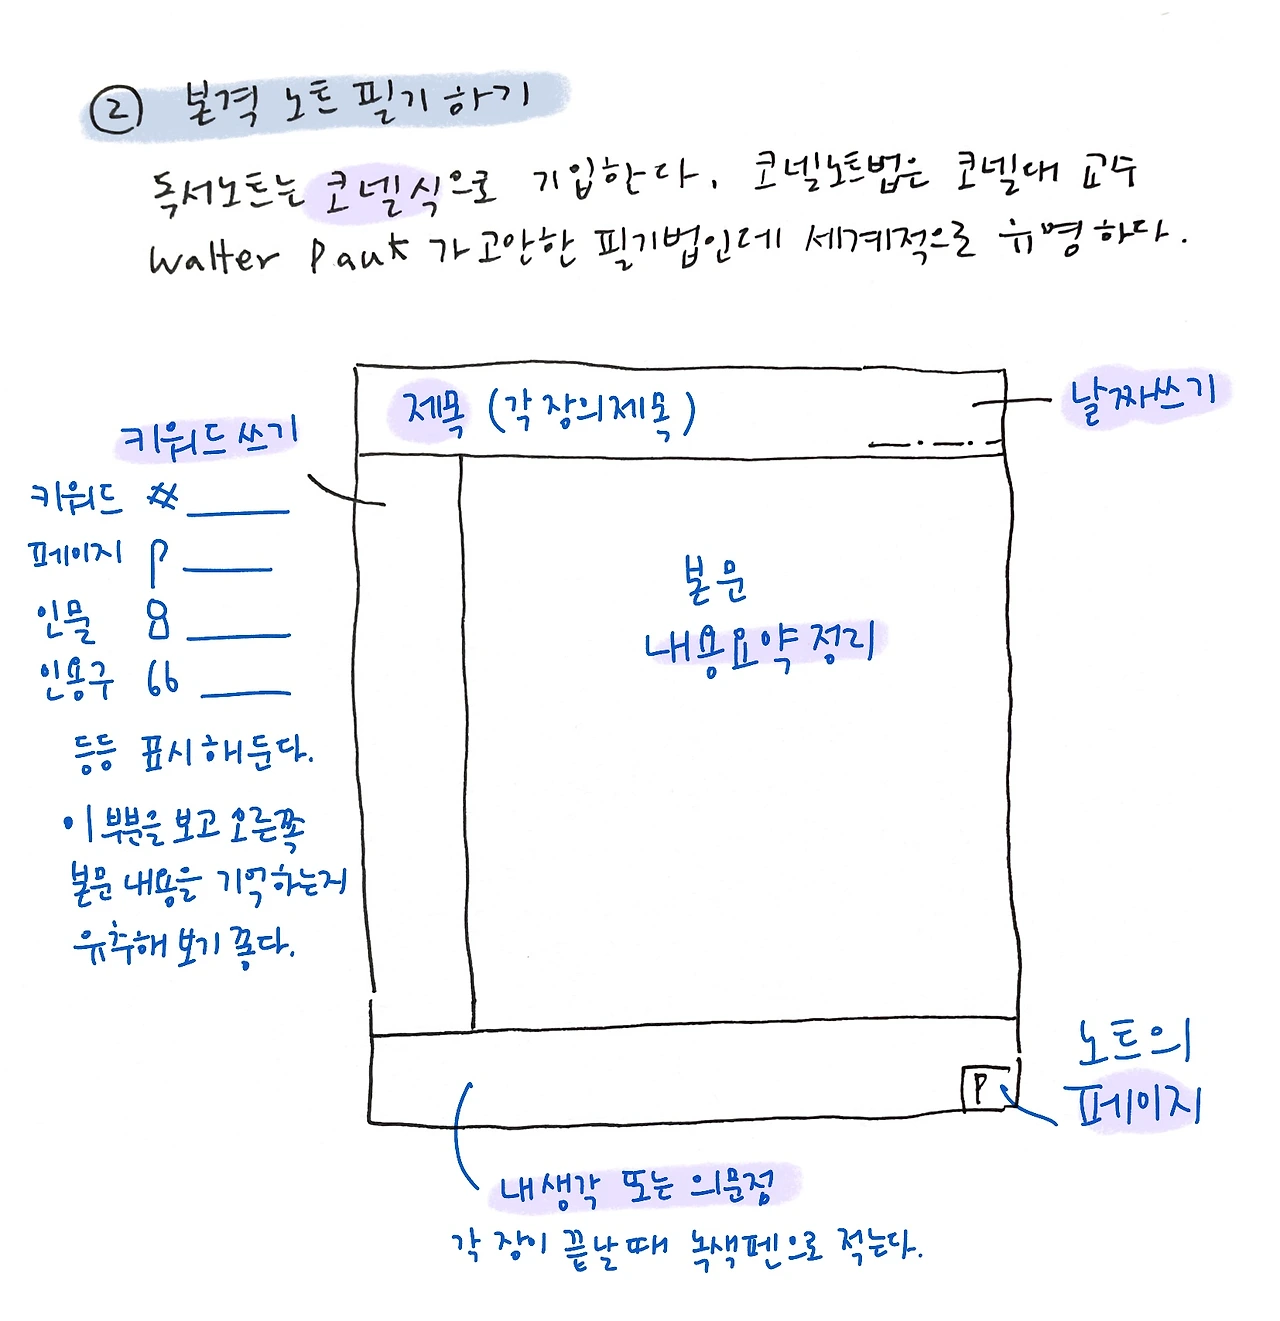 ② 본격 노트 필기하기
독서노트는 코넬식으로 기입한다. 코넬노트법은 코넬대 교수
Walter Pauk가 고안한 필기법인데 세계적으로 유명하다.
제목 (각 장의 제목)
날짜쓰기
키워드 쓰기
키워드 #
페이지 p
인물 8
인용구 66
등등 표시해둔다.
이 부분을 보고 오른쪽
본문 내용을 기억하는지
유추해 보기 좋다.
본문
내용요약정리
P
노트의
페이지
내 생각 또는 의문점
각 장이 끝날 때 녹색펜으로 적는다.